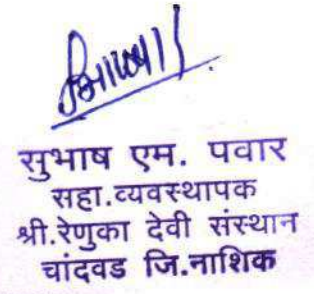 सुभाष एम. पवार
सहा.व्यवस्थापक
श्री.रेणुका देवी संस्थान
चांदवड जि.नाशिक